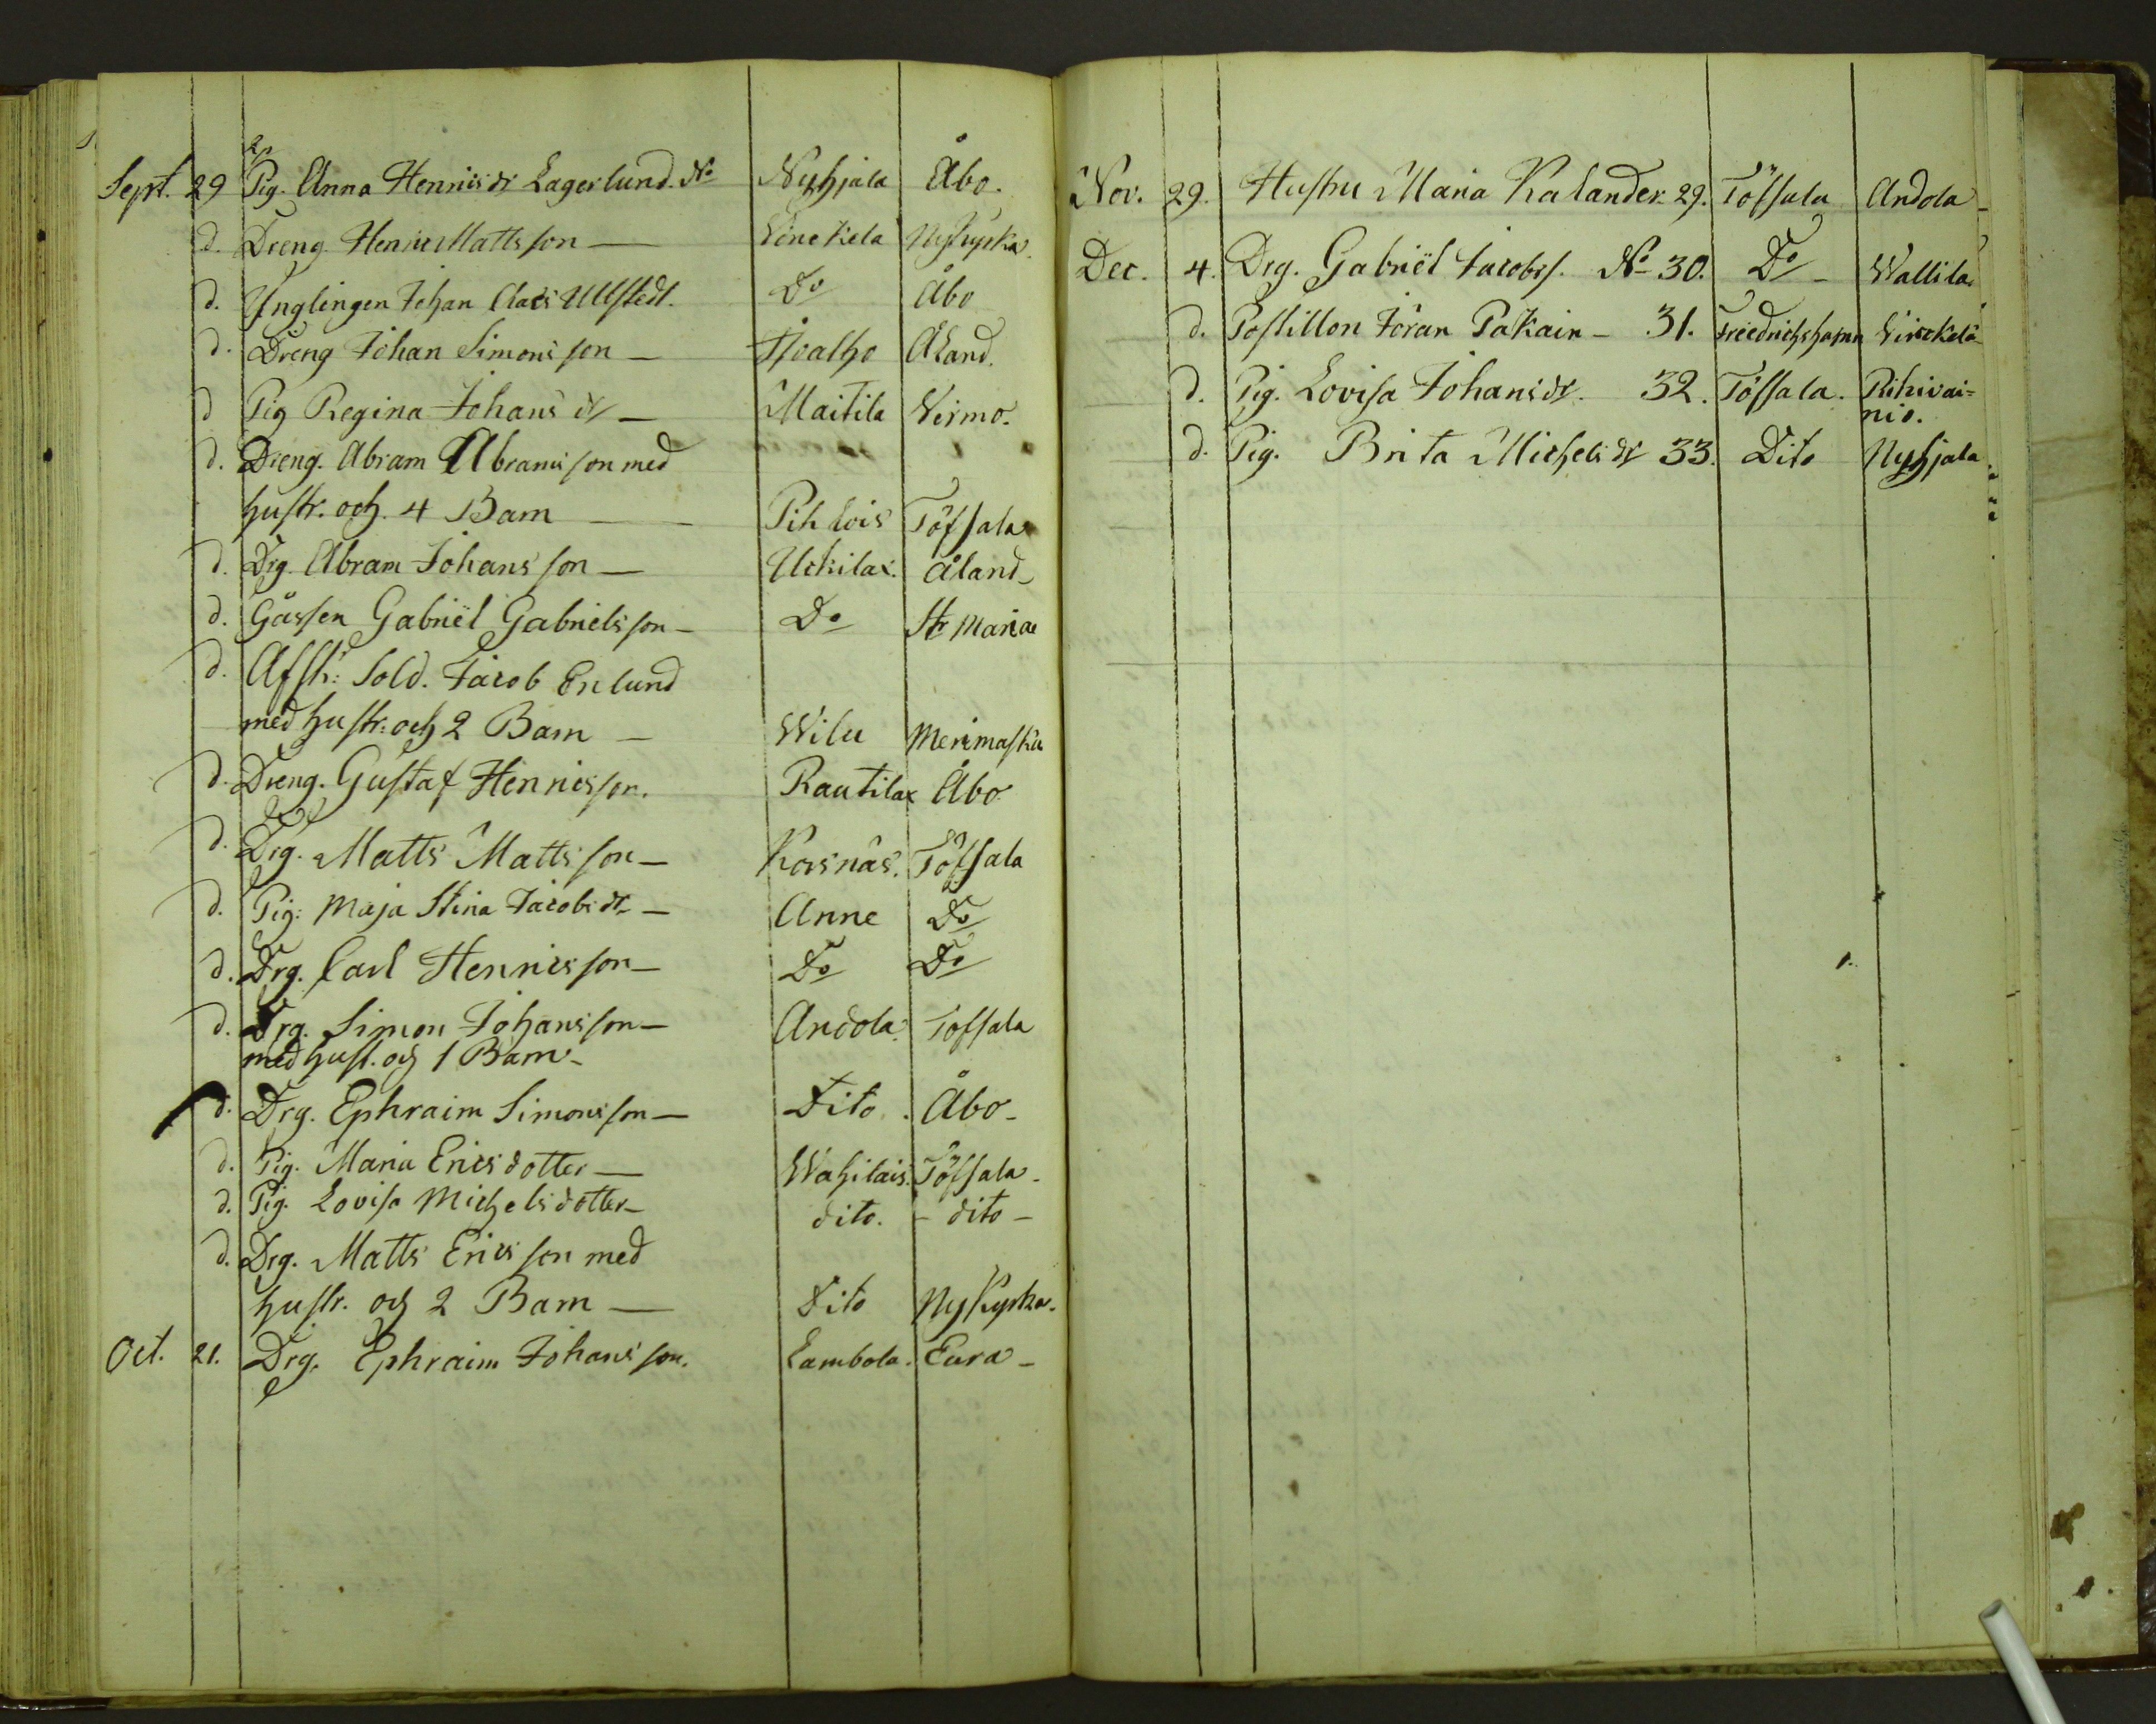 Sept. 29 Pig. Anna Henricsdr Lagerlund. No Nyhjala Åbo.
d. Dreng Henric Mattsson — Nykyrka.
d. Ynglingen Johan Claes Ullstedt. Do Åbo
d. Dreng Johan Simonsson — Åland.
d Pig Regina Johansdr — Maitila Virmo.
d. Dreng. Abram Abramsson med
hustr. och 4 Barn — Pihlois Töfsala
d. Drg. Abram Johansson — Uckilax. Åland
d. Gåssen Gabriël Gabrielsson — Do St Mariae
d. Afsk: Sold. Jacob Enlund
med hustr: och 2 Barn — Wilu Merimasku
d. Dreng. Gustaf Henricsson. Rautilax Åbo
d. Drg. Matts Mattsson — Korsnäs. Töfsala
d. Pig: Maja Stina Jacobsdr — Anne Do
d. Drg. Carl Henricsson — Do Do
d. Drg. Simon Johansson — Andola. Tofsala
med hust. och 1 Barn —
d. Drg. Ephraim Simonsson — Dito. Åbo —
d. Pig. Maria Ericsdotter — Wahilais. Töfsala —
d. Pig. Lovisa Michelsdotter — dito. — dito —
d. Drg. Matts Ericsson med
hustr. och 2 Barn — Dito Nykyrka.
Oct. 21. Drg. Ephraim Johansson. Lambola. Eura —
Nov. 29. Hustru Maria Kalander. 29. Töfsala Andola
Dec. 4. Drg. Gabriël Jacobss. No 30. Do — Wallila
d. Postillon Jöran Pakain — 31. Friedrichshamn Vinckela
d. Pig. Lovisa Johansdr. 32. Töfsala. Pihivai=
nio.
d. Pig. Brita Michelsdr 33. Dito Nyhjala